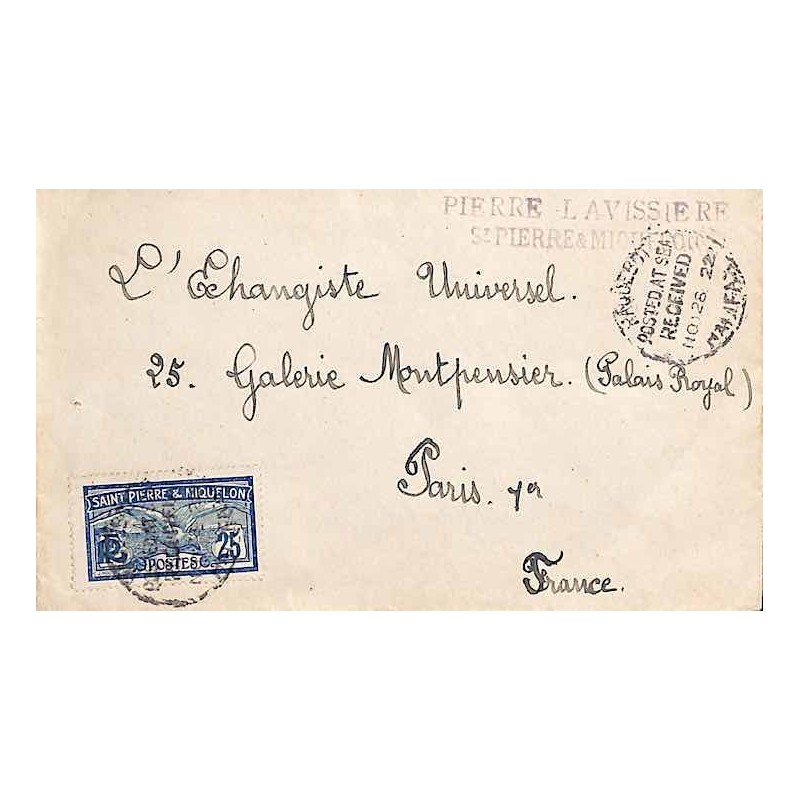 PIERRE LAVISSIERE
St PIERRE & MIQUELON
PAQUEBOT
POSTED AT SEA
RECEIVED
NO 28 22
HALIFAX
L'Echangiste Universel.
25. Galerie Montpensier. (Palais Royal)
Paris. 1er
France.
SAINT PIERRE & MIQUELON
25
POSTES